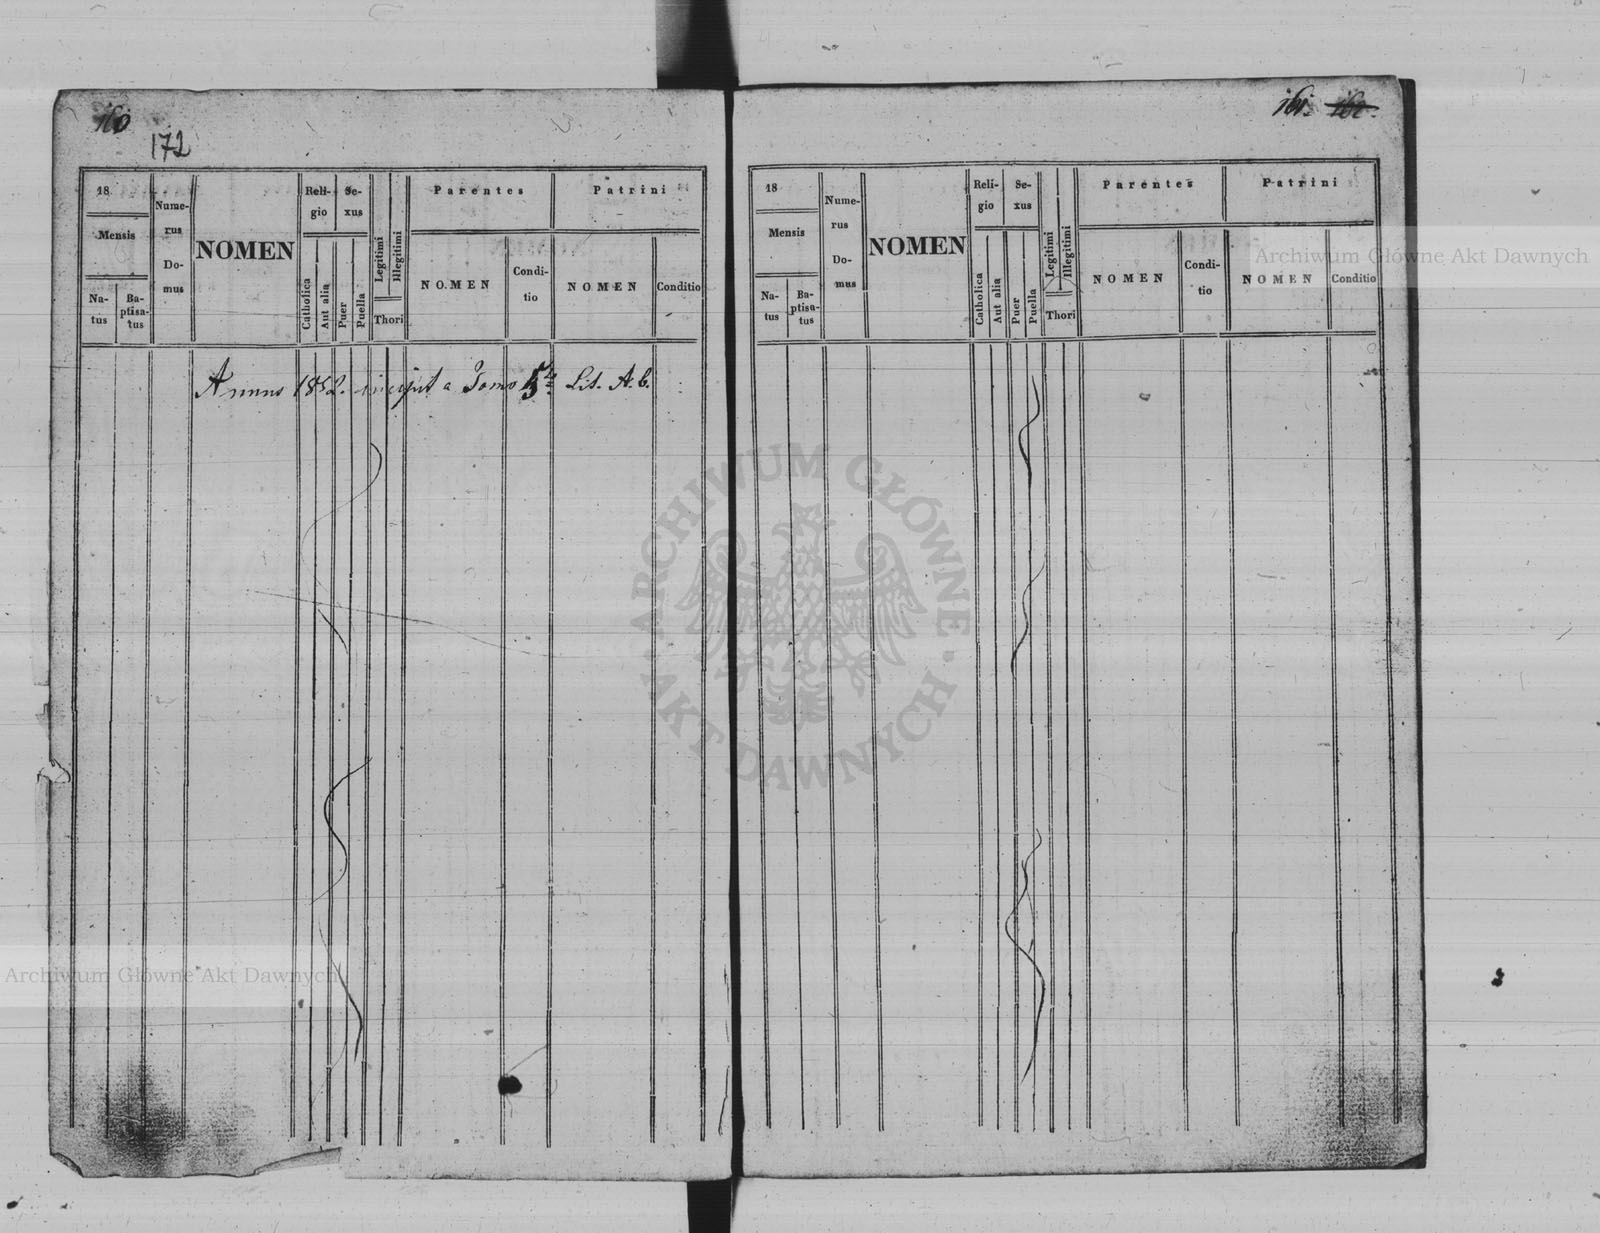 160
172
18
Mensis
Na-
tus
Ba-
ptisa-
tus
Nume-
rus
Do-
mus
NOMEN
Reli-
gio
Catholica
Aut alia
Se-
xus
Puer
Puella
Legitimi
Illegitimi
Thori
Parentes
NOMEN
Condi-
tio
Patrini
NOMEN
Conditio
Annus 1852. incipit a Tomo 5to Lit. A. b.
161. 162.
18
Mensis
Na-
tus
Ba-
ptisa-
tus
Nume-
rus
Do-
mus
NOMEN
Reli-
gio
Catholica
Aut alia
Se-
xus
Puer
Puella
Legitimi
Illegitimi
Thori
Parentes
NOMEN
Condi-
tio
Patrini
NOMEN
Conditio
Archiwum Główne Akt Dawnych
ARCHIWUM GŁÓWNE · AKT DAWNYCH ·
Archiwum Główne Akt Dawnych